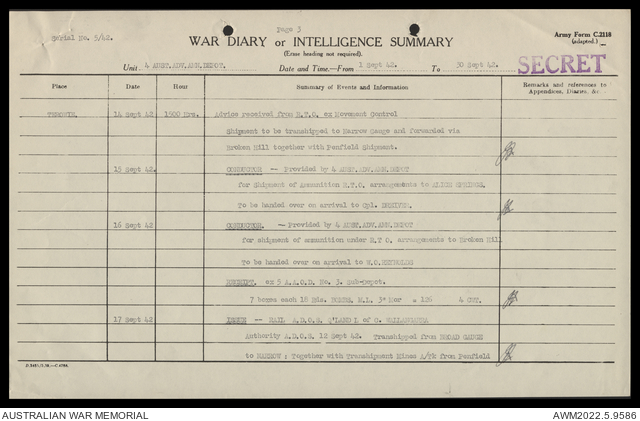 Serial No. 5/42.
Page 3
WAR DIARY or INTELLIGENCE SUMMARY
(Erase heading not required).
Army Form C.2118
(adapted.)
SECRET
Unit. 4 AUST.ADV.AMN.DEPOT. Date and Time.—From 1 Sept 42. To 30 Sept 42.
Place Date Hour Summary of Events and Information Remarks and references to Appendices, Diaries, &c.
TEROWIE. 14 Sept 42 1500 Hrs. Advice received from R.T.O. ex Movement Control
Shipment to be transhipped to Narrow Gauge and forwarded via
Broken Hill together with Penfield Shipment.
15 Sept 42. CONDUCTOR — Provided by 4 AUST.ADV.AMN.DEPOT
for Shipment of Ammunition R.T.O. arrangements to ALICE SPRINGS.
To be handed over on arrival to Cpl.
16 Sept 42 CONDUCTOR. — Provided by 4 AUST.ADV.AMN.DEPOT
for shipment of ammunition under R.T.O. arrangements to Broken Hill
To be handed over on arrival to W.O. REYNOLDS
RECEIPT. ex 5 A.A.O.D. No. 3. Sub-Depot.
7 boxes each 18 Rds. BOMBS. M.L. 3" Mor = 126 4 CWT.
17 Sept 42 ISSUE — RAIL A.D.O.S. Q'LAND L of C. WALLANGARRA
Authority A.D.O.S. 12 Sept 42. Transhipped from BROAD GAUGE
to NARROW; Together with Transhipment Mines A/Tk from Penfield
AUSTRALIAN WAR MEMORIAL
AWM2022.5.9586